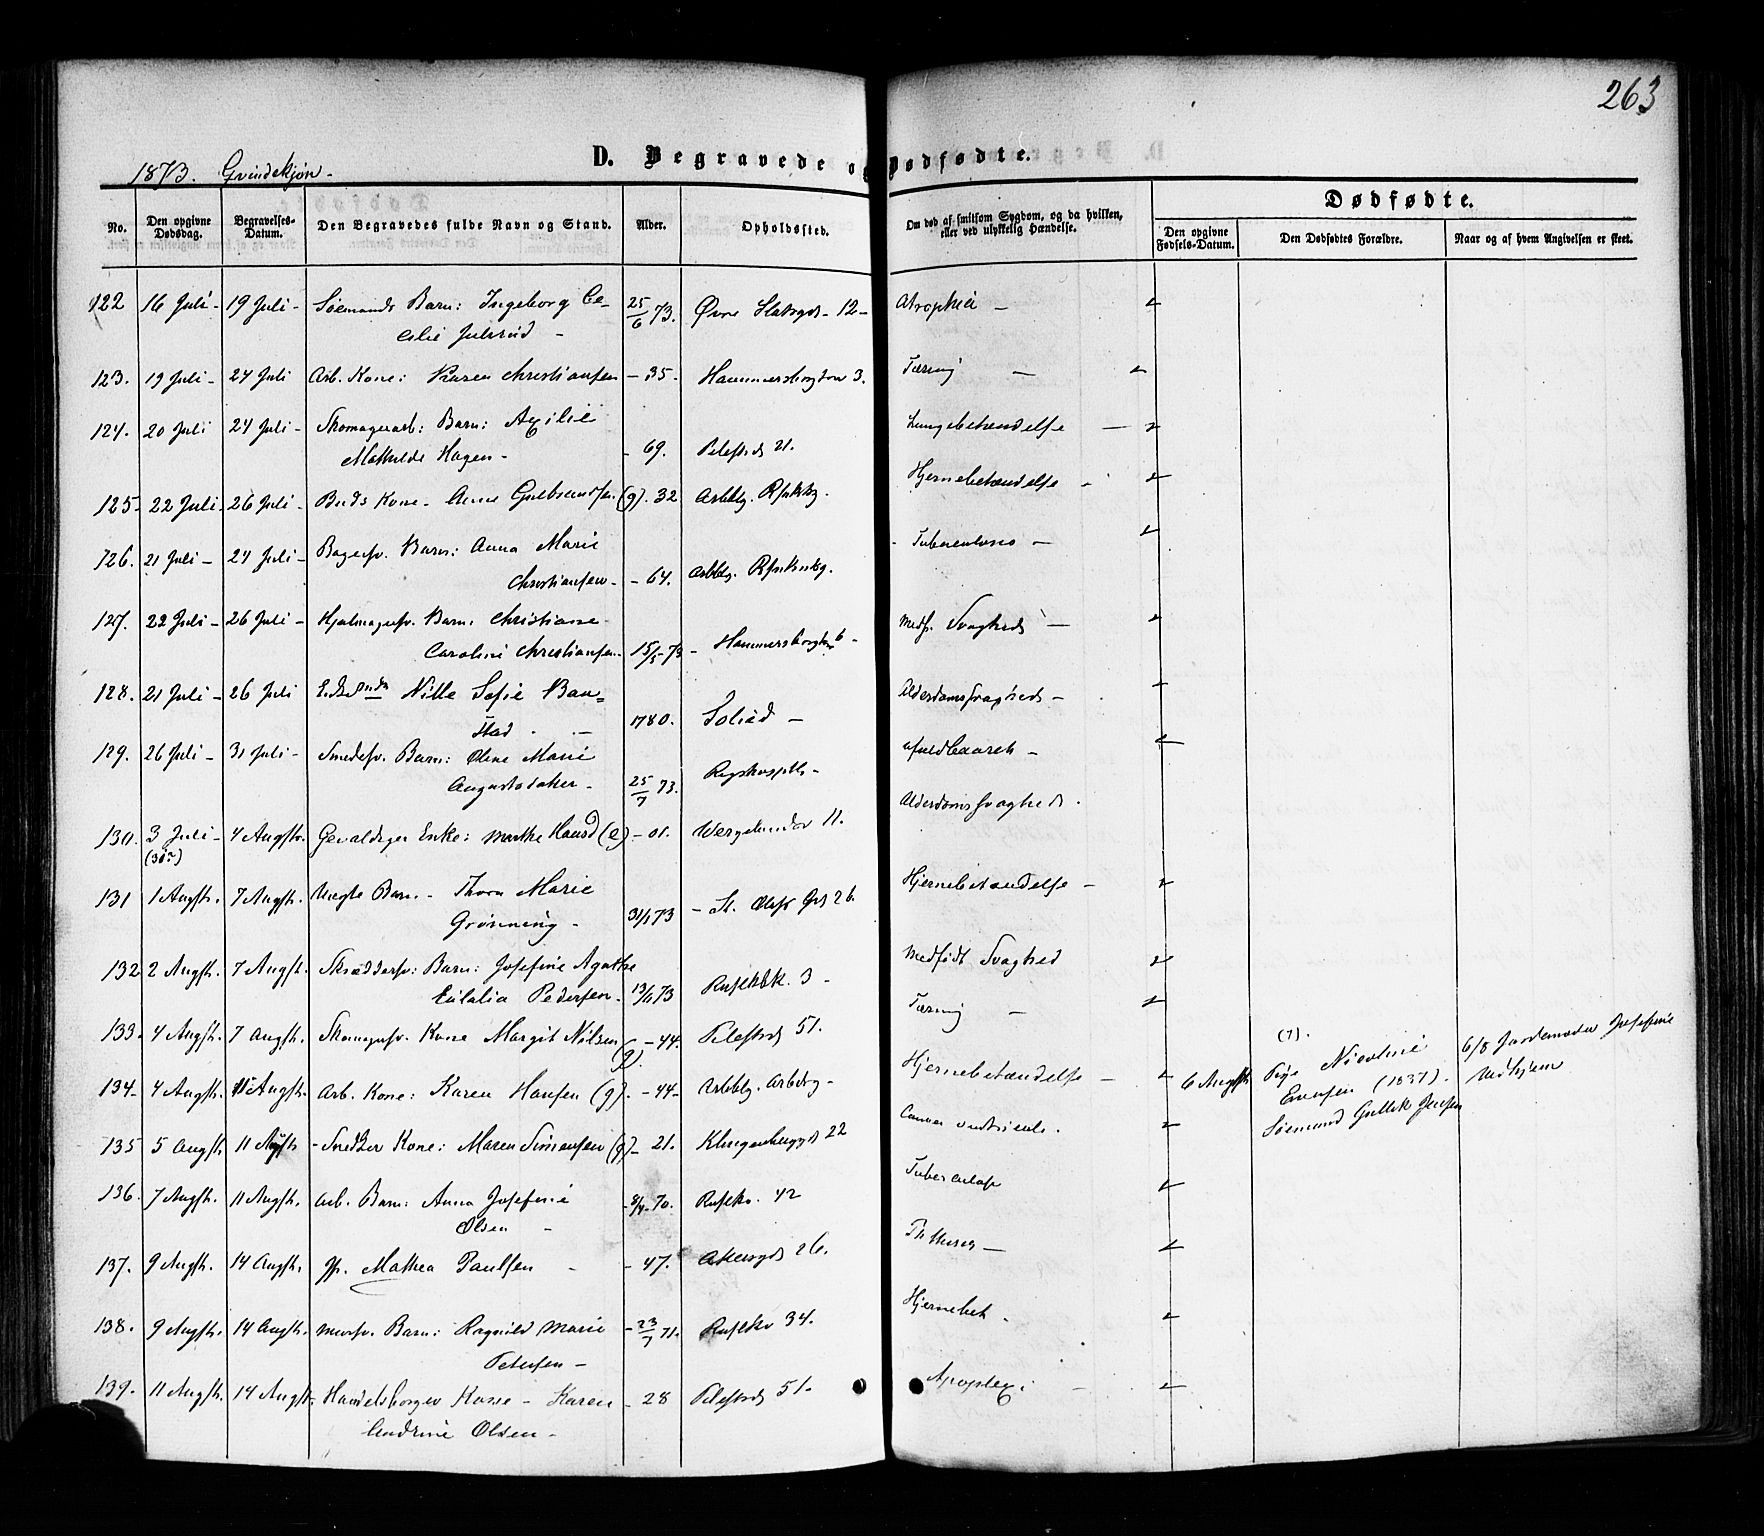 263
D. Begravede og Dødfødte.
1873. Qvindekjøn.
No.
Den opgivne Dødsdag.
Begravelses-Datum.
Den Begravedes fulde Navn og Stand.
Alder.
Opholdssted.
Om død af smitsom Sygdom, og da hvilken, eller ved ulykkelig Hændelse.
Dødfødte.
Den opgivne Fødsels-Datum.
Den Dødfødtes Forældre.
Naar og af hvem Angivelsen er skeet.
122 16 Juli - 19 Juli - Sømands Barn: Ingeborg Ce- 25/6 73. Øvre Slotsgd - 12 - Atrophia -
cilie Julsrud -
123. 19 Juli - 24 Juli Arb. Kone: Karen Christiansen - 35. Hammersborgbak 3. Tæring -
124. 20 Juli 24 Juli - Skomagerarb: Barn: Axilie Lungebetændelse -
Mathilde Hagen - - 69. Pilestrd 21.
125 - 22 Juli - 26 Juli - Buds Kone - Anne Gulbrandsen (g). 32 Arbblg. Hjernebetændelse -
126. 21 Juli - 24 Juli - Bagersv. Barn: Anna Marie Tuberculosis -
Christiansen - - 64. Arbblg.
127. 22 Juli - 26 Juli - Hjulmagersv. Barn: Christiane Medf. Svaghed -
Caroline Christiansen - 15/5 - 73 - Hammersborgbk 6 -
128. 21 Juli - 26 Juli Nille Sofie Bau= Alderdomssvaghed -
stad - 1780. Soliad -
129. 26 Juli - 31 Juli - Smedesv. Barn: Oline Marie ufuldbaaret -
Augusta 25/7 73. Rigshospitl -
130. 3 Juli - 4 Augst. Gevaldiger Enke: Marthe Hansd (e) - 01. Wergelandsv 11. Alderdomssvaghed.
(30?)
131 1 Augst. 7 Augst. Uægte Barn - Thora Marie Hjernebetændelse -
Grønning - 31/1 73 - St. Olafs Gd 26.
132 2 Augst. 7 Augst. Skræddersv: Barn: Josefine Agathe Medfødt Svaghed
Eulalia Pedersen - 13/6 73 Rusløkbk. 3 -
133. 4 Augst. 7 Augst. Skomagersv. Kone Margit Nilsen (g). - 44. Pilestrd 51. Tæring -
134. 4 Augst. 11 Augst. Arb. Kone: Karen Hansen (g). - 44 - Arbblg. Arbbrg - Hjernebetændelse -
6 Augst. (7). Pige Nicoline 6/8 Jordemoder Josefine
Evensen (1837). Midhjem
Sømand Gullik Jensen
135 5 Augst 11 Augst - Snedker Kone: Maren Simensen (g) - 21. Klingenberggd 22 Cancer ventriculi.
136. 7 Augst. 11 Augst. Arb. Barn: Anna Josefine - 8/4 - 70. Rusløkv. 42 Tuberculose
Olsen -
137. 9 Augst. 14 Augst. Gp. Mathea Paulsen - - 47. Akersgd 26. Phthisis -
138. 9 Augst. 14 Augst. Mursv. Barn: Ragnild Marie - 23/7 71. Rusløkv 34. Hjernebet.
Petersen -
139. 11 Augst. 14 Augst. Handelsborger Kone - Karen - 28 Pilestrd 51. Apoplexi -
Andrine Olsen -